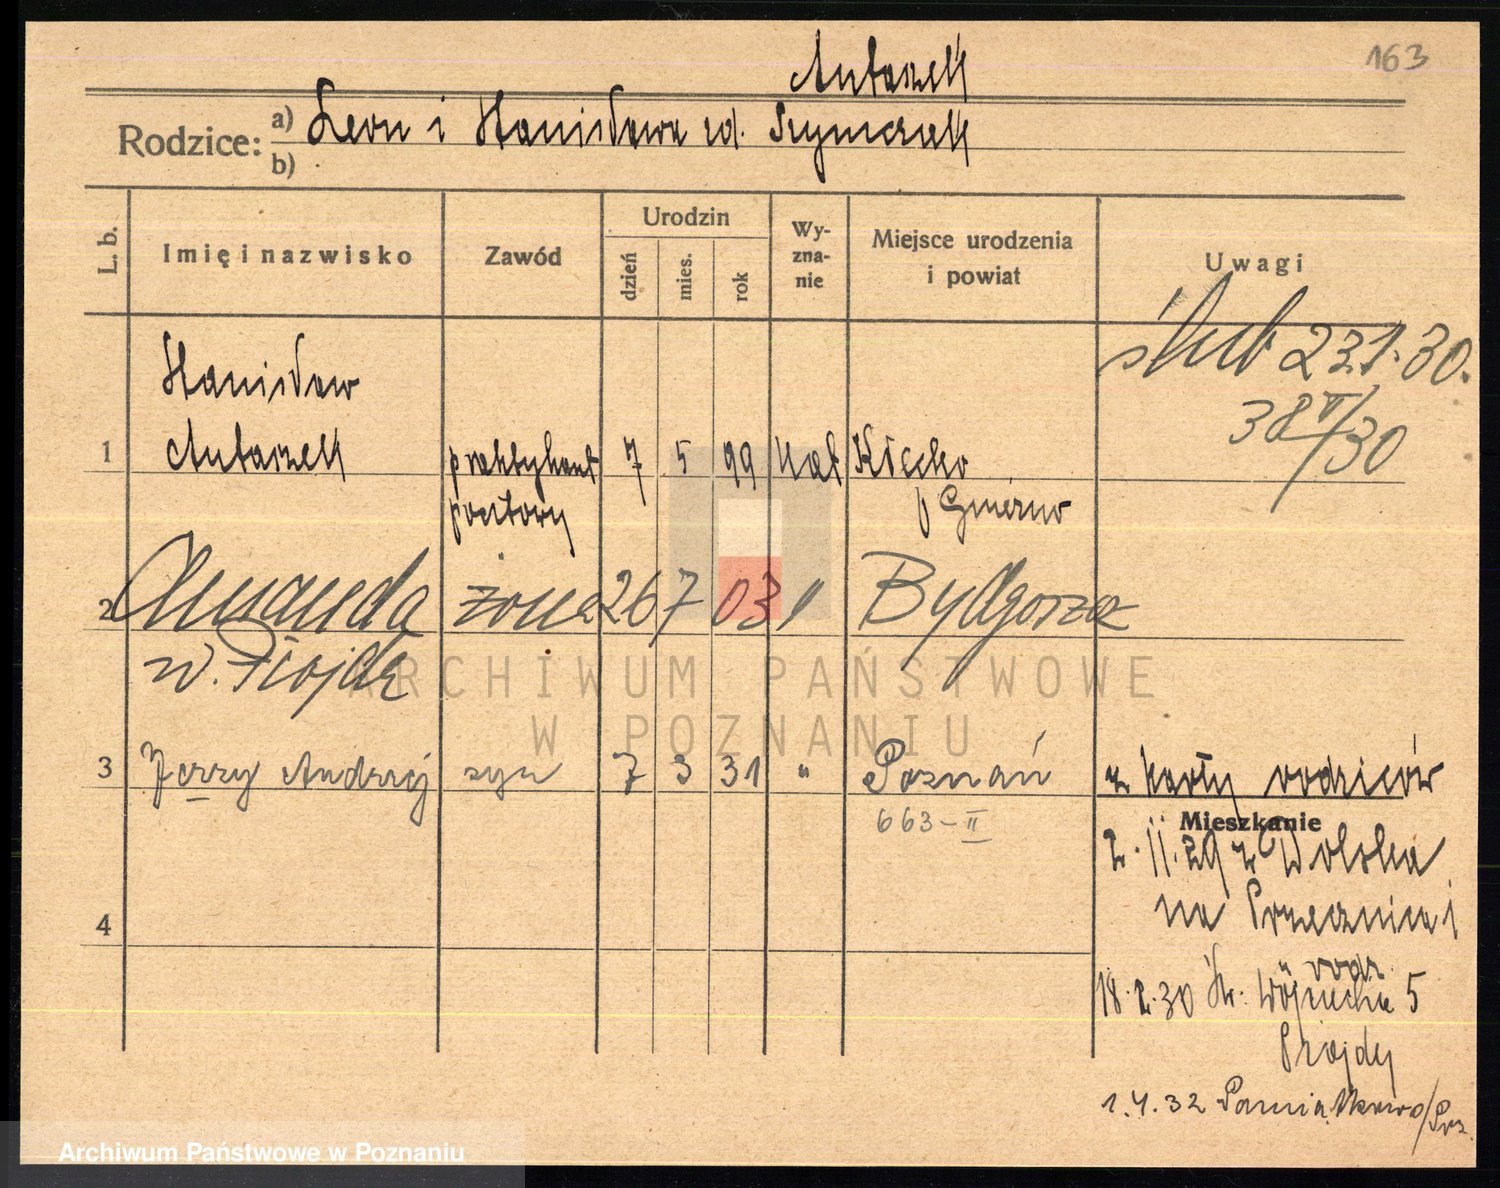 163
Antaszek
Rodzice:
a) Leon i Stanisława zd. Szymczak
b)
L. b.
Imię i nazwisko
Zawód
Urodzin
dzień
mies.
rok
Wy-
zna-
nie
Miejsce urodzenia
i powiat
Uwagi
ślub 23.1.30.
38 /30
Stanisław
1 Antaszek praktykant 7 5 99 kat Kłecko
pocztowy p Gniezno
2 Amanda żona 26 7 03 Bydgoszcz
w.
3 Jerzy Andrzej syn 7 3 31 " Poznań z karty rodziców
663-II
Mieszkanie
2.11.29 z Wolska
na Przecznica 1
4
u rodz.
18.2.30 Św. Wojciecha 5
1.4.32 Pamiątkowo/Poz.
ARCHIWUM PAŃSTWOWE
W POZNANIU
Archiwum Państwowe w Poznaniu